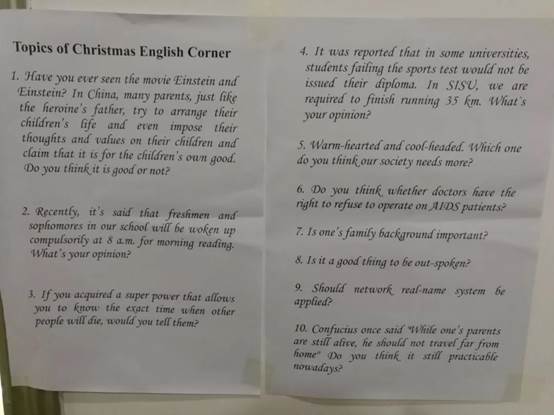 Topics of Christmas English Corner
1. Have you ever seen the movie Einstein and
Einstein? In China, many parents, just like
the heroine's father, try to arrange their
children's life and even impose their
thoughts and values on their children and
claim that it is for the children's own good.
Do you think it is good or not?
2. Recently, it's said that freshmen and
sophomores in our school will be woken up
compulsorily at 8 a.m. for morning reading.
What's your opinion?
3. If you acquired a super power that allows
you to know the exact time when other
people will die, would you tell them?
4. It was reported that in some universities,
students failing the sports test would not be
issued their diploma. In SISU, we are
required to finish running 35 km. What's
your opinion?
5. Warm-hearted and cool-headed. Which one
do you think our society needs more?
6. Do you think whether doctors have the
right to refuse to operate on AIDS patients?
7. Is one's family background important?
8. Is it a good thing to be out-spoken?
9. Should network real-name system be
applied?
10. Confucius once said "While one's parents
are still alive, he should not travel far from
home" Do you think it still practicable
nowadays?